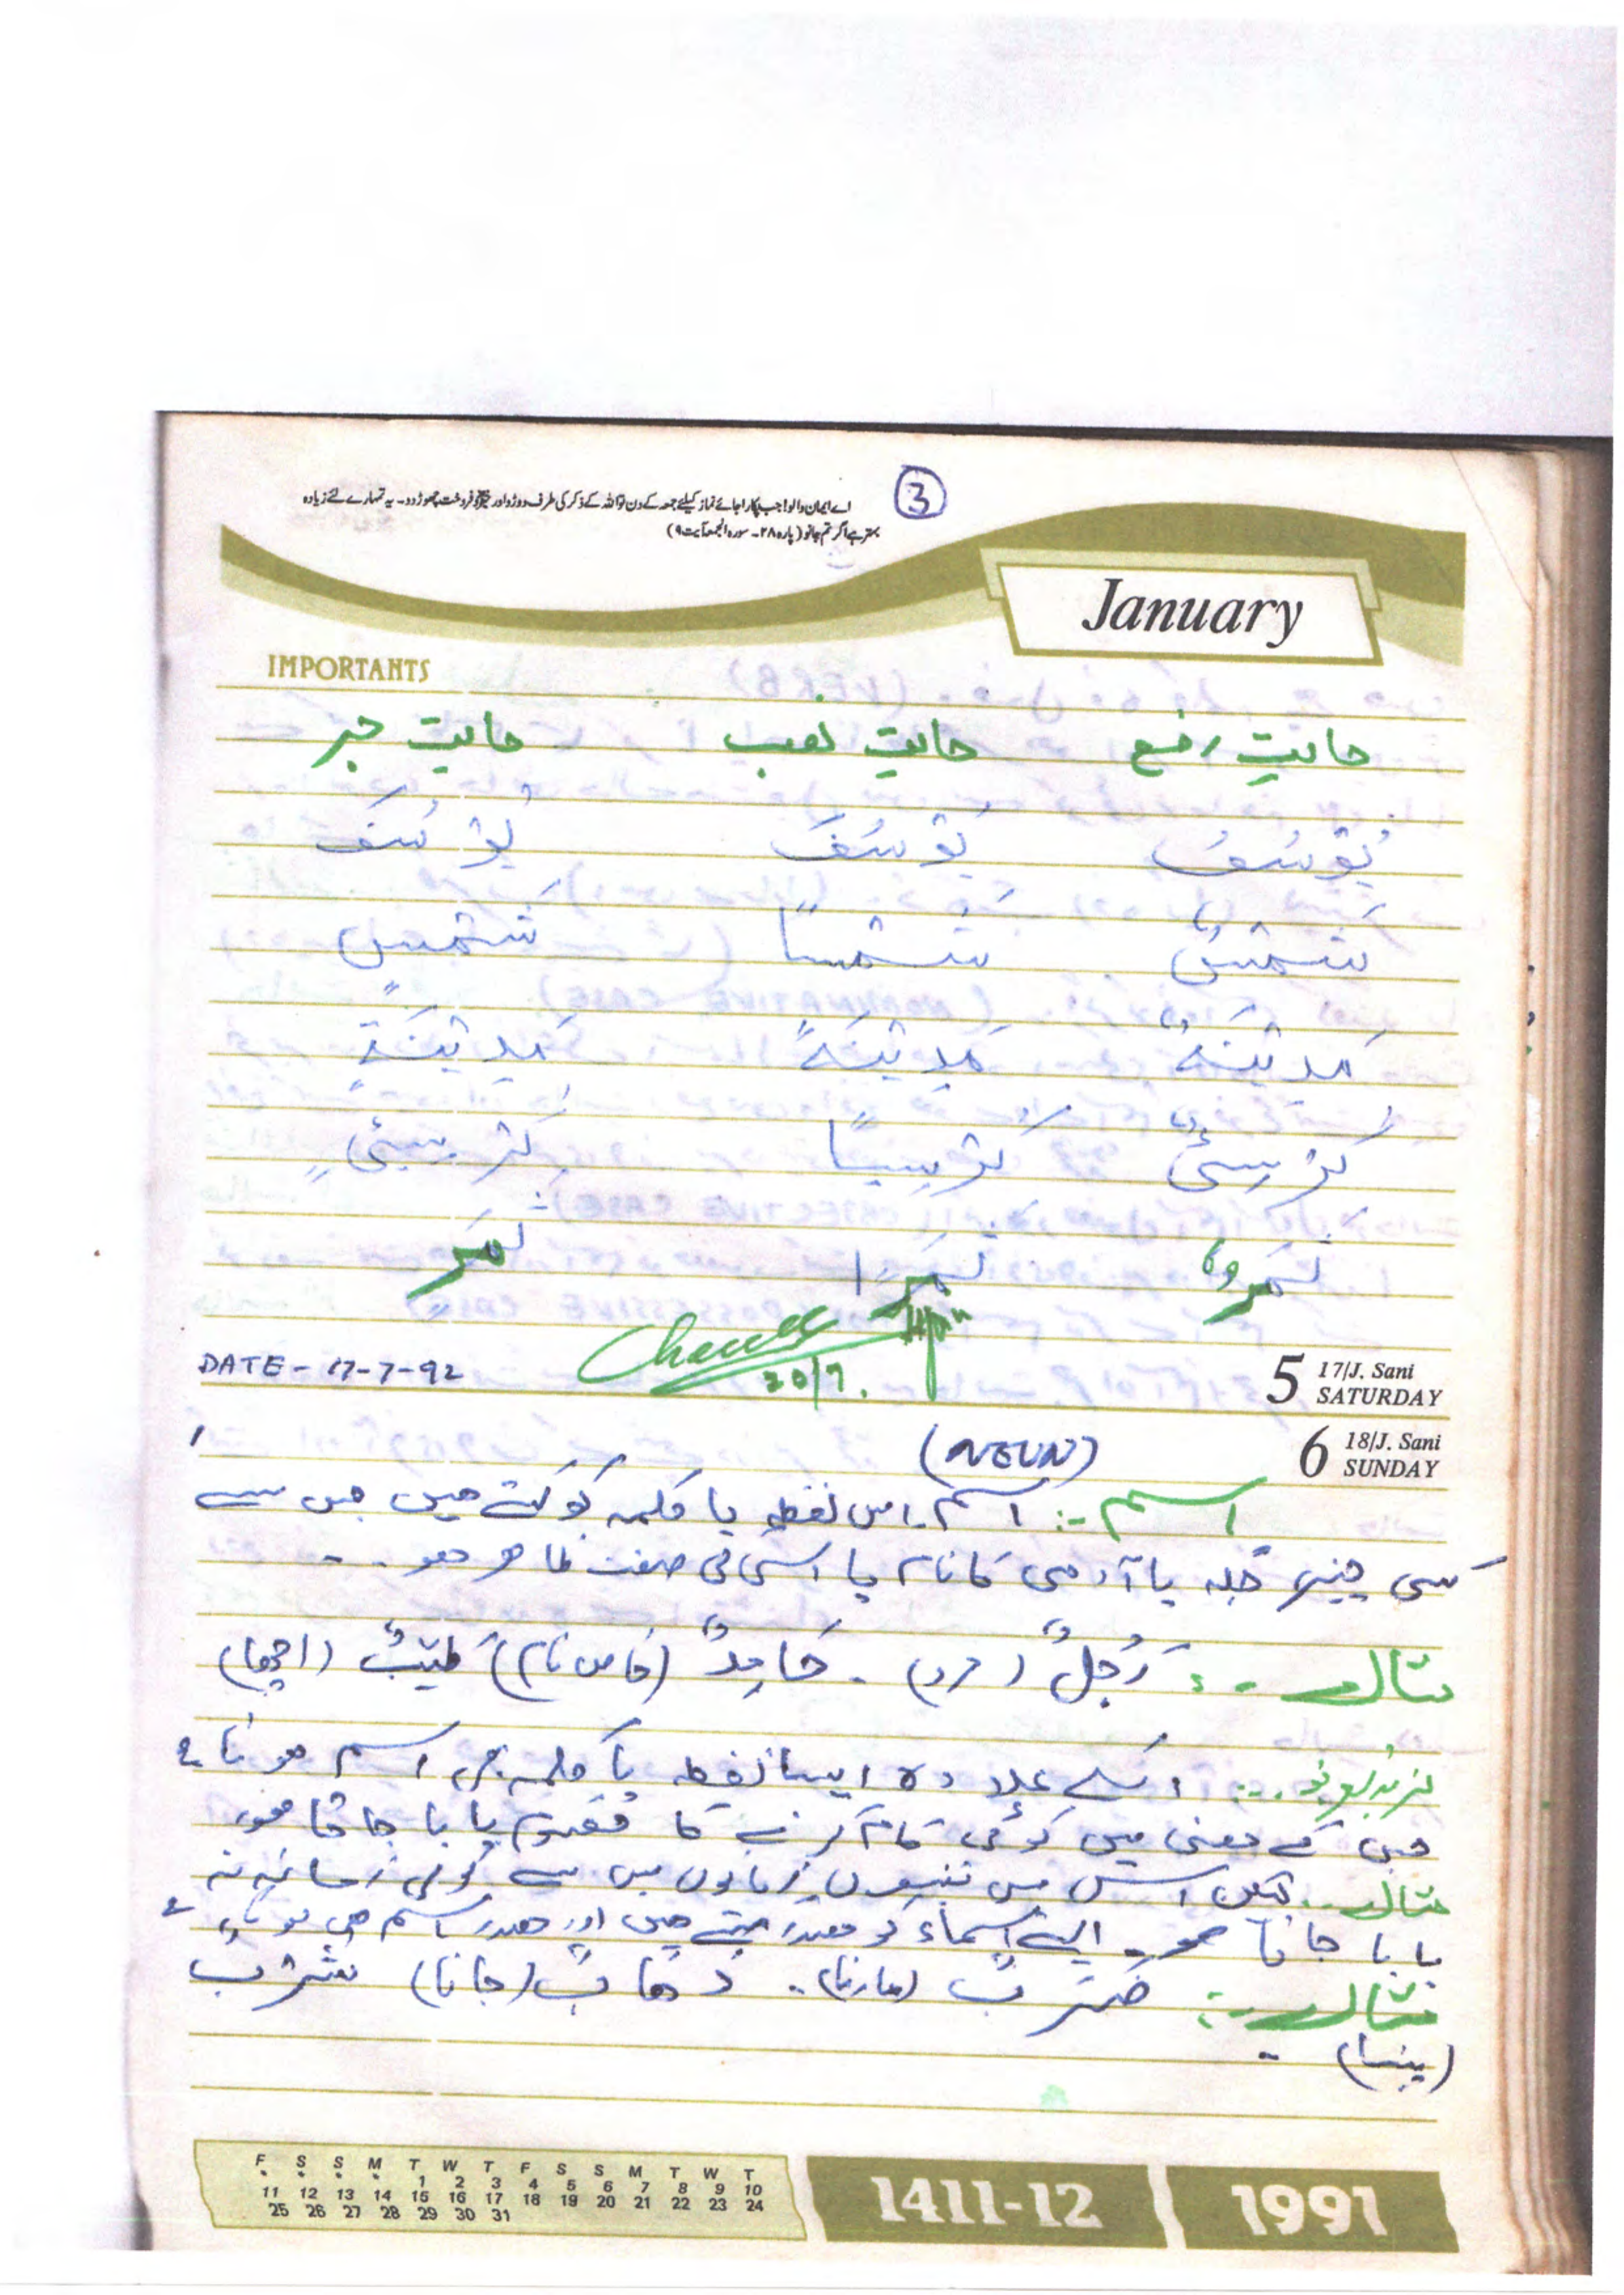 ③
اے ایمان والو! جب پکارا جائے نماز کیلئے جمعہ کے دن تو اللہ کے ذکر کی طرف دوڑو اور خرید و فروخت چھوڑ دو۔ یہ تمہارے لئے زیادہ
بہتر ہے اگر تم جانو (پارہ ۲۸۔ سورہ الجمعہ آیت ۹)
January
IMPORTANTS
حالتِ رفع حالتِ نصب حالتِ جر
يُوْسُفُ يُوْسُفَ يُوْسُفَ
شَمْسٌ شَمْسًا شَمْسٍ
مَدِيْنَةٌ مَدِيْنَةً مَدِيْنَةٍ
كُرْسِىٌّ كُرْسِيًّا كُرْسِىٍّ
ثَمَرٌ ثَمَرًا ثَمَرٍ
DATE - 17-7-92
20/7.
5 17/J. Sani SATURDAY
6 18/J. Sani SUNDAY
(NOUN)
اسم -: اسم اس لفظ یا کلمہ کو کہتے ہیں جس سے
کسی چیز، جگہ یا آدمی کا نام یا اس کی صفت ظاہر ہو۔
مثال -: رَجُلٌ (مرد) ۔ حَامِدٌ (خاص نام) طَيِّبٌ (اچھا)
اسکے علاوہ ایسا لفظ یا کلمہ بھی اسم ہوتا ہے
جس کے معنی میں کوئی کام کرنے کا مفہوم پایا جاتا ہو
مثال لیکن اس میں تینوں زمانوں میں سے کوئی زمانہ نہ
پایا جاتا ہو۔ ایسے اسماء کو مصدر کہتے ہیں اور مصدر اسم ہی ہوتا ہے
مثال -: ضَرْبٌ (مارنا)۔ ذَهَابٌ (جانا) شُرْبٌ
(پینا) -
F S S M T W T F S S M T W T
1 2 3 4 5 6 7 8 9 10
11 12 13 14 15 16 17 18 19 20 21 22 23 24
25 26 27 28 29 30 31
1411-12
1991